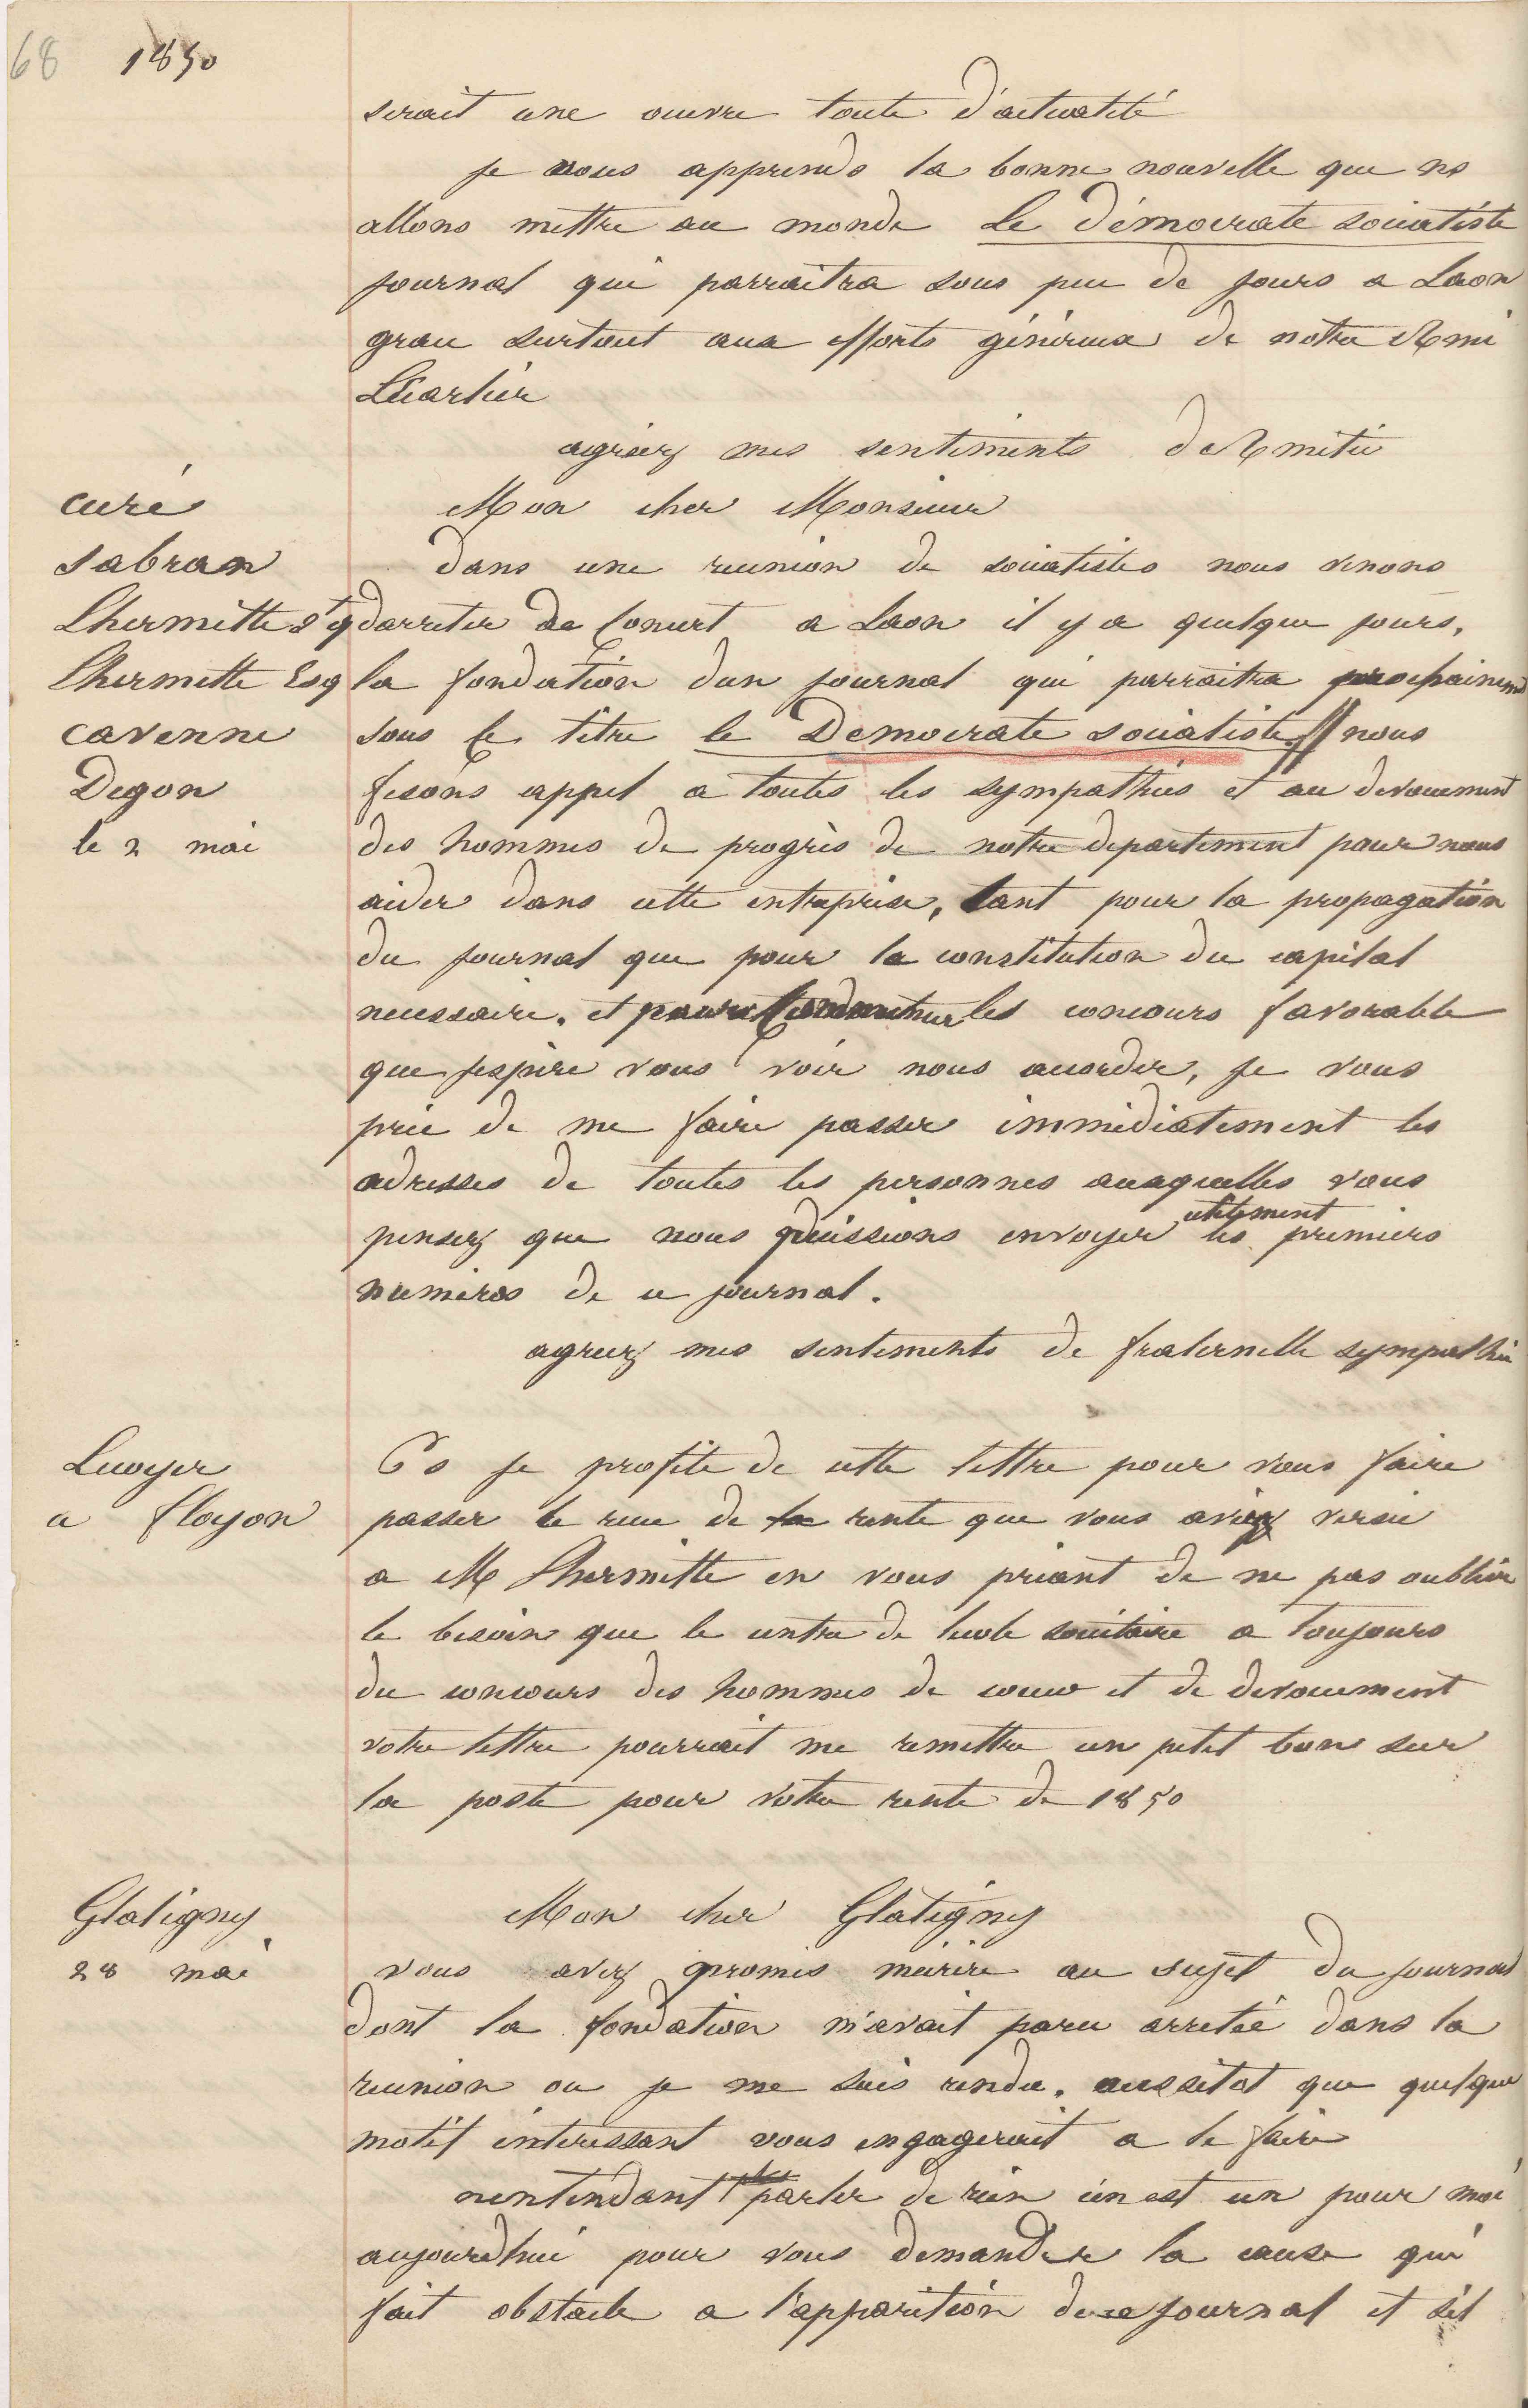 68 1850
serait une œuvre toute d'actualité
je vous apprends la bonne nouvelle que ns
allons mettre au monde Le Démocrate socialiste
journal qui parraitra sous peu de jours a Laon
grace surtout aux efforts généreux de notre Ami
Lécarlier
agréez mes sentiments d'Amitié
curé
Mon cher Monsieur
Sabran
dans une reunion de socialistes nous venons
Lhermitte St q
darreter de Concert a Laon il y a quelque jours,
Lhermitte Esq
la fondation dun journal qui parraitra prochainemt
cavenne
sous le titre le Democrate socialiste // nous
Degon
fesons appel a toutes les sympathies et au devouement
le 2 mai
des hommes de progrès de notre departement pour nous
aider dans cette entreprise, tant pour la propagation
du journal que pour la constitution du capital
necessaire. et les concours favorable
que jespère vous voir nous accorder, je vous
prie de me faire passer immédiatement les
adresses de toutes les personnes auxquelles vous
pensez que nous puissions envoyer utilement les premiers
numéros de ce journal.
agreez mes sentiments de fraternelle sympathie
Lecoyer
a floyon
Ps je profite de cette lettre pour vous faire
passer le recu de la rente que vous aviez versée
a M Lhermitte en vous priant de ne pas oublier
le besoin que le centre de lecole sociétaire a toujours
du concours des hommes de cœur et de devouement
votre lettre pourrait me remettre un petit bon sur
la poste pour votre rente de 1850
Glatigny
28 mai
Mon cher Glatigny
vous avez promis mécrire au sujet du journal
dont la fondation m'avait paru arretée dans la
reunion ou je me suis rendu. aussitot que quelque
motif intéressant vous engagerait a le faire
nentendant plus parler de rien cen est un pour moi
aujourdhui pour vous demander la cause qui
fait obstacle a l'apparition de ce journal et sil